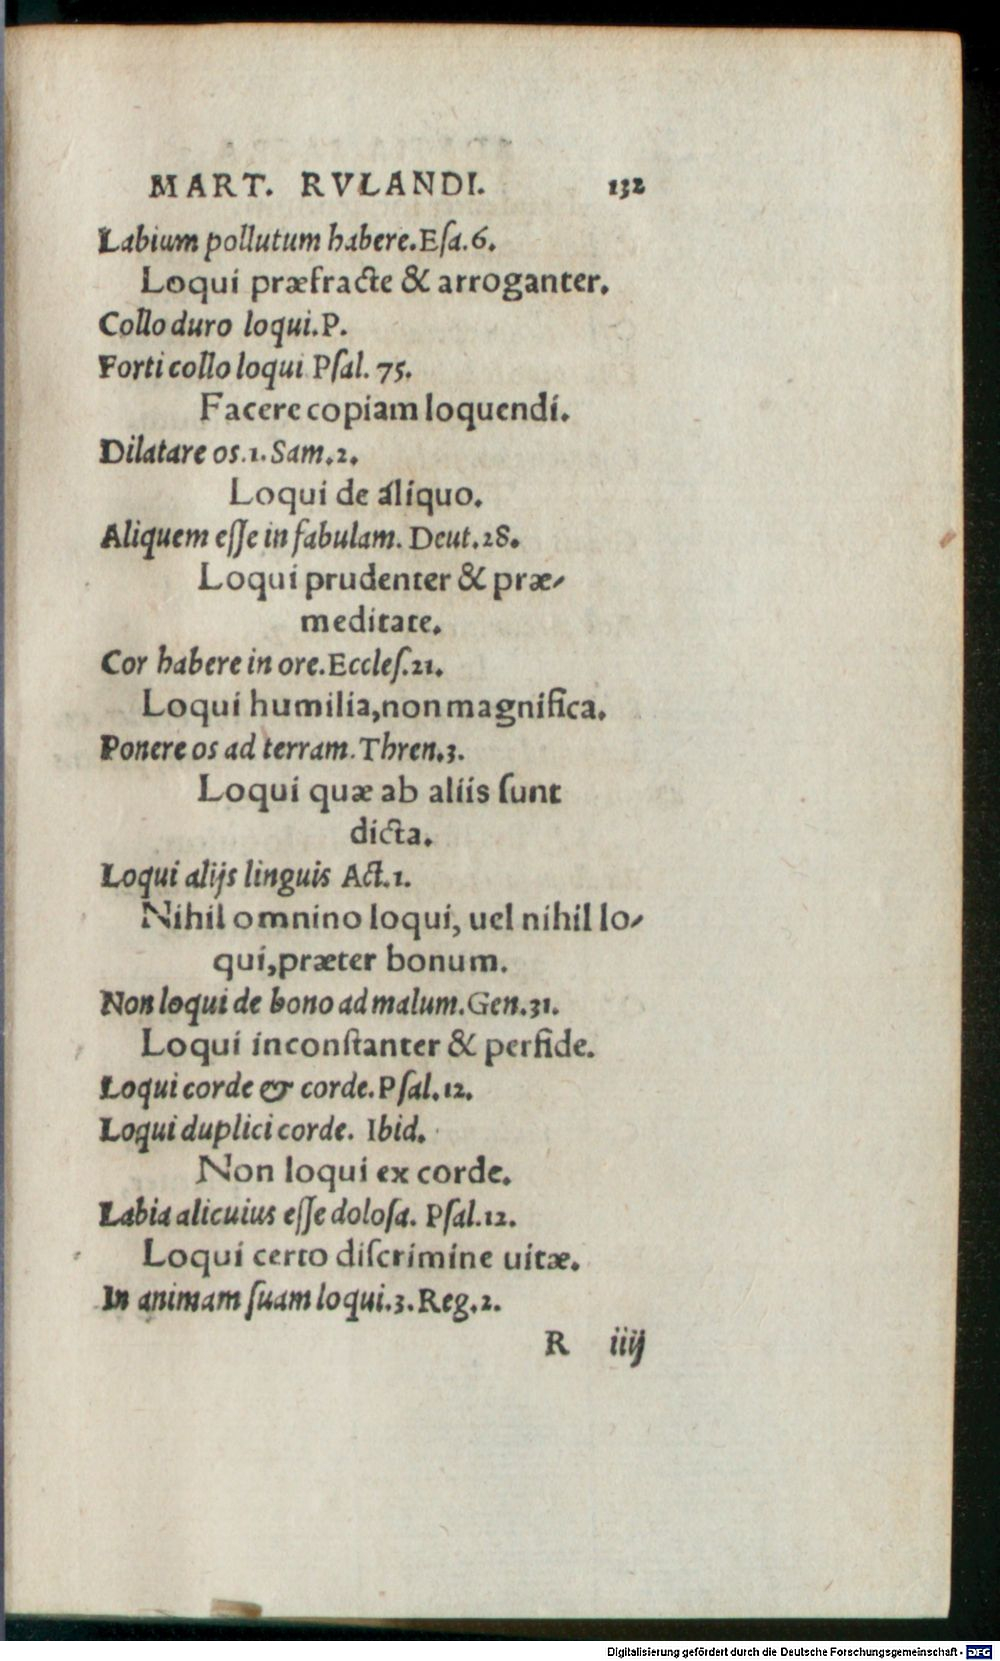 MART. RVLANDI. 132
Labium pollutum habere. Eſa. 6.
Loqui præfracte & arroganter.
Collo duro loqui. P.
Forti collo loqui Pſal. 75.
Facere copiam loquendi.
Dilatare os. 1. Sam. 2.
Loqui de aliquo.
Aliquem eſſe in fabulam. Deut. 28.
Loqui prudenter & præ-
meditate.
Cor habere in ore. Eccleſ. 21.
Loqui humilia, non magnifica.
Ponere os ad terram. Thren. 3.
Loqui quæ ab aliis ſunt
dicta.
Loqui alijs linguis Act. 1.
Nihil omnino loqui, uel nihil lo-
qui, præter bonum.
Non loqui de bono ad malum. Gen. 31.
Loqui inconſtanter & perfide.
Loqui corde & corde. Pſal. 12.
Loqui duplici corde. Ibid.
Non loqui ex corde.
Labia alicuius eſſe doloſa. Pſal. 12.
Loqui certo diſcrimine uitæ.
In animam ſuam loqui. 3. Reg. 2.
R iiij
Digitalisierung gefördert durch die Deutsche Forschungsgemeinschaft - DFG